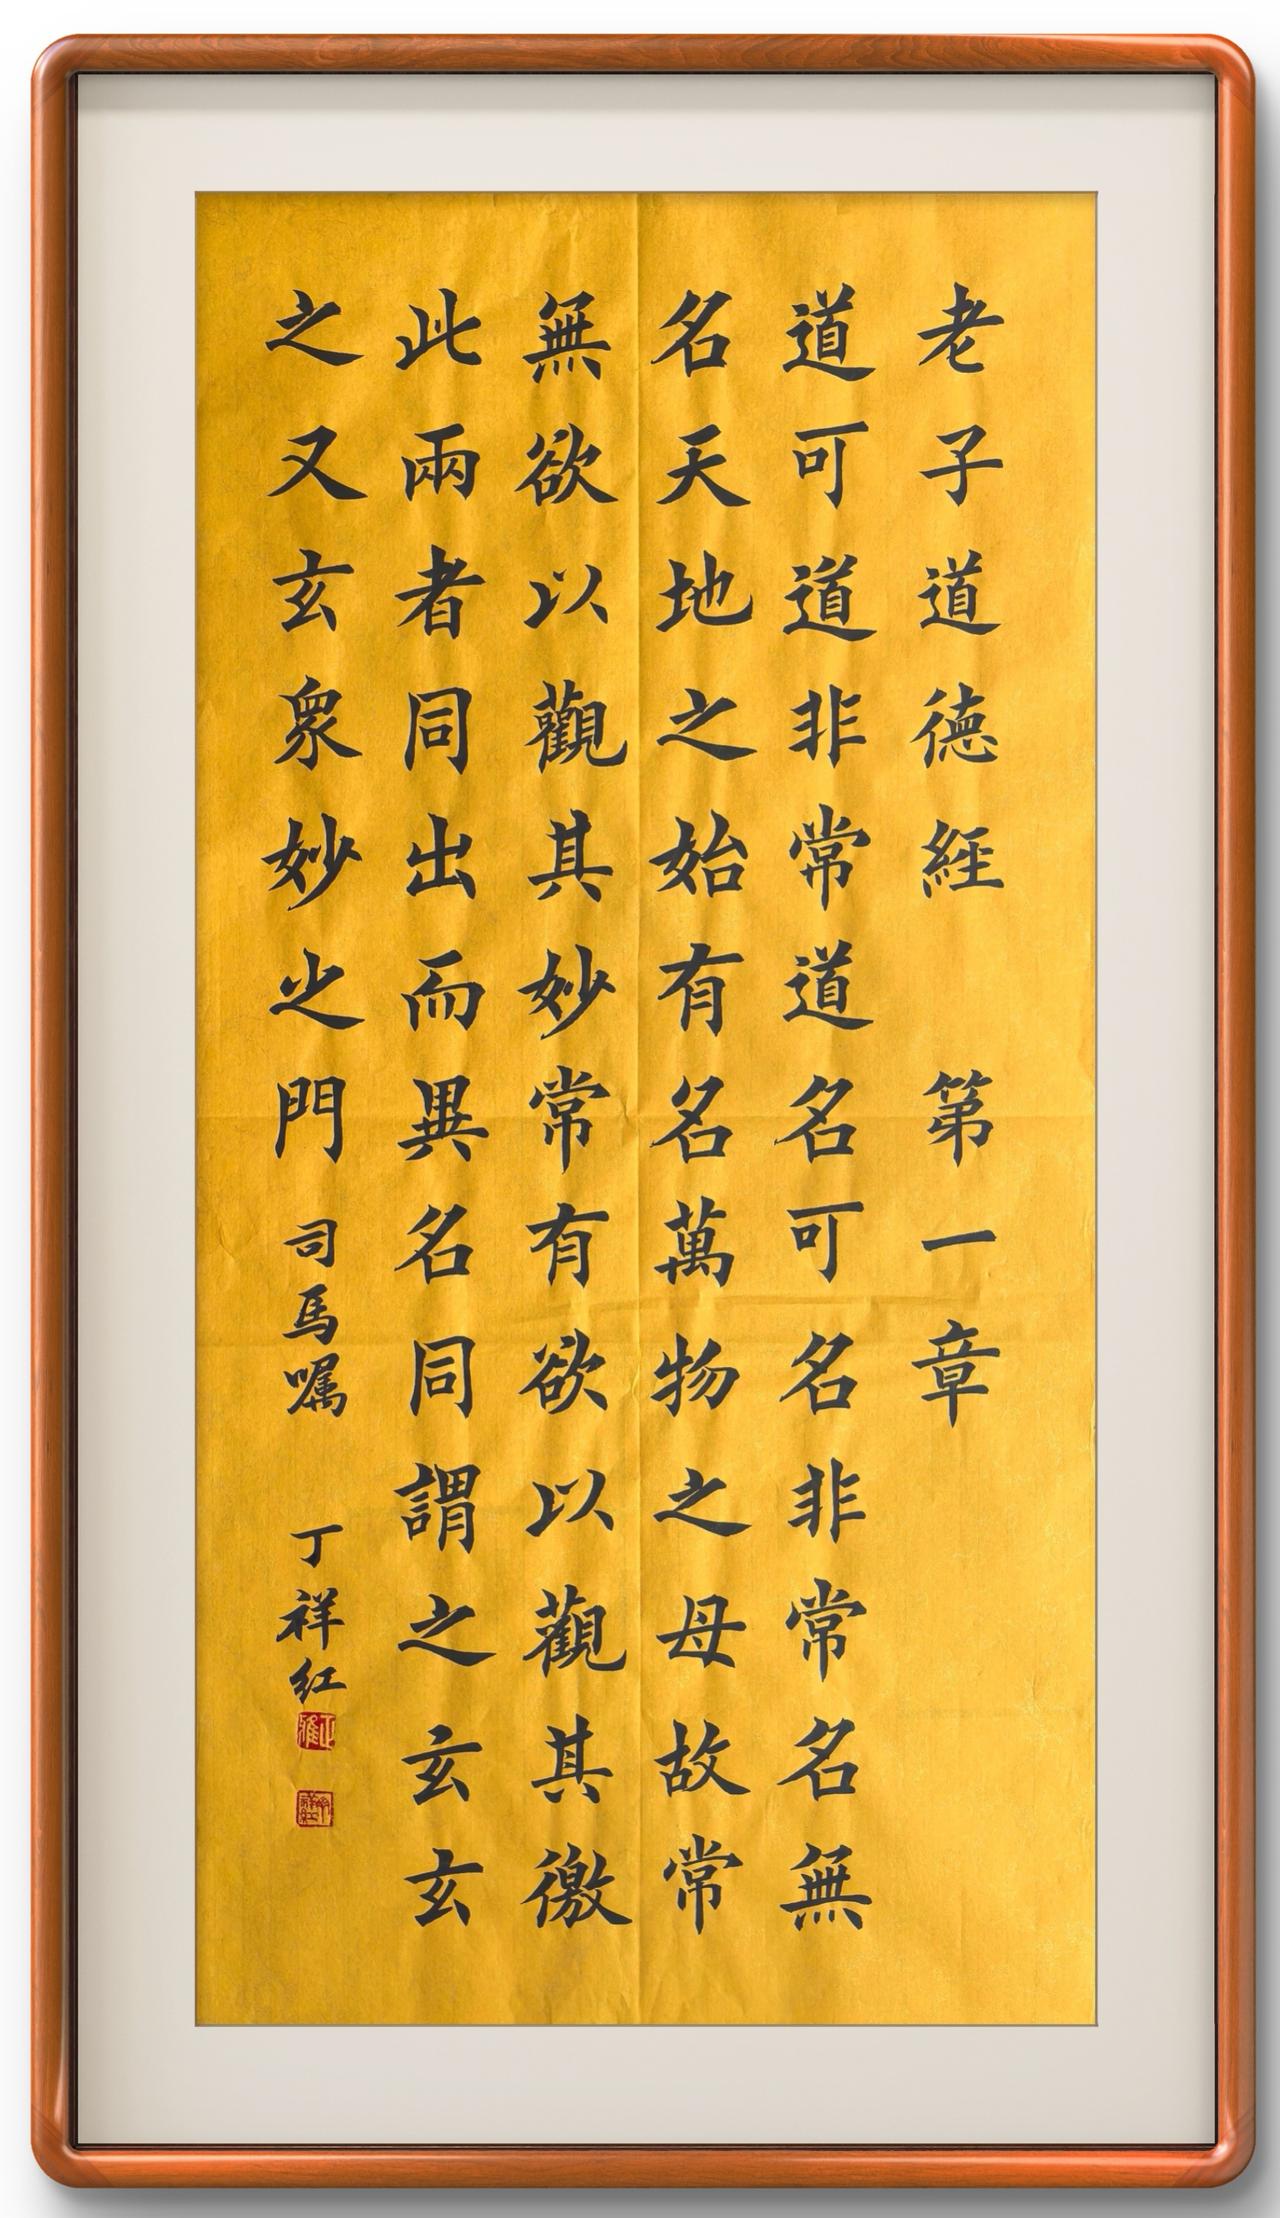 老子道德經 第一章
道可道非常道名可名非常名無
名天地之始有名萬物之母故常
無欲以觀其妙常有欲以觀其徼
此兩者同出而異名同謂之玄玄
之又玄衆妙之門 司馬嘱 丁祥红